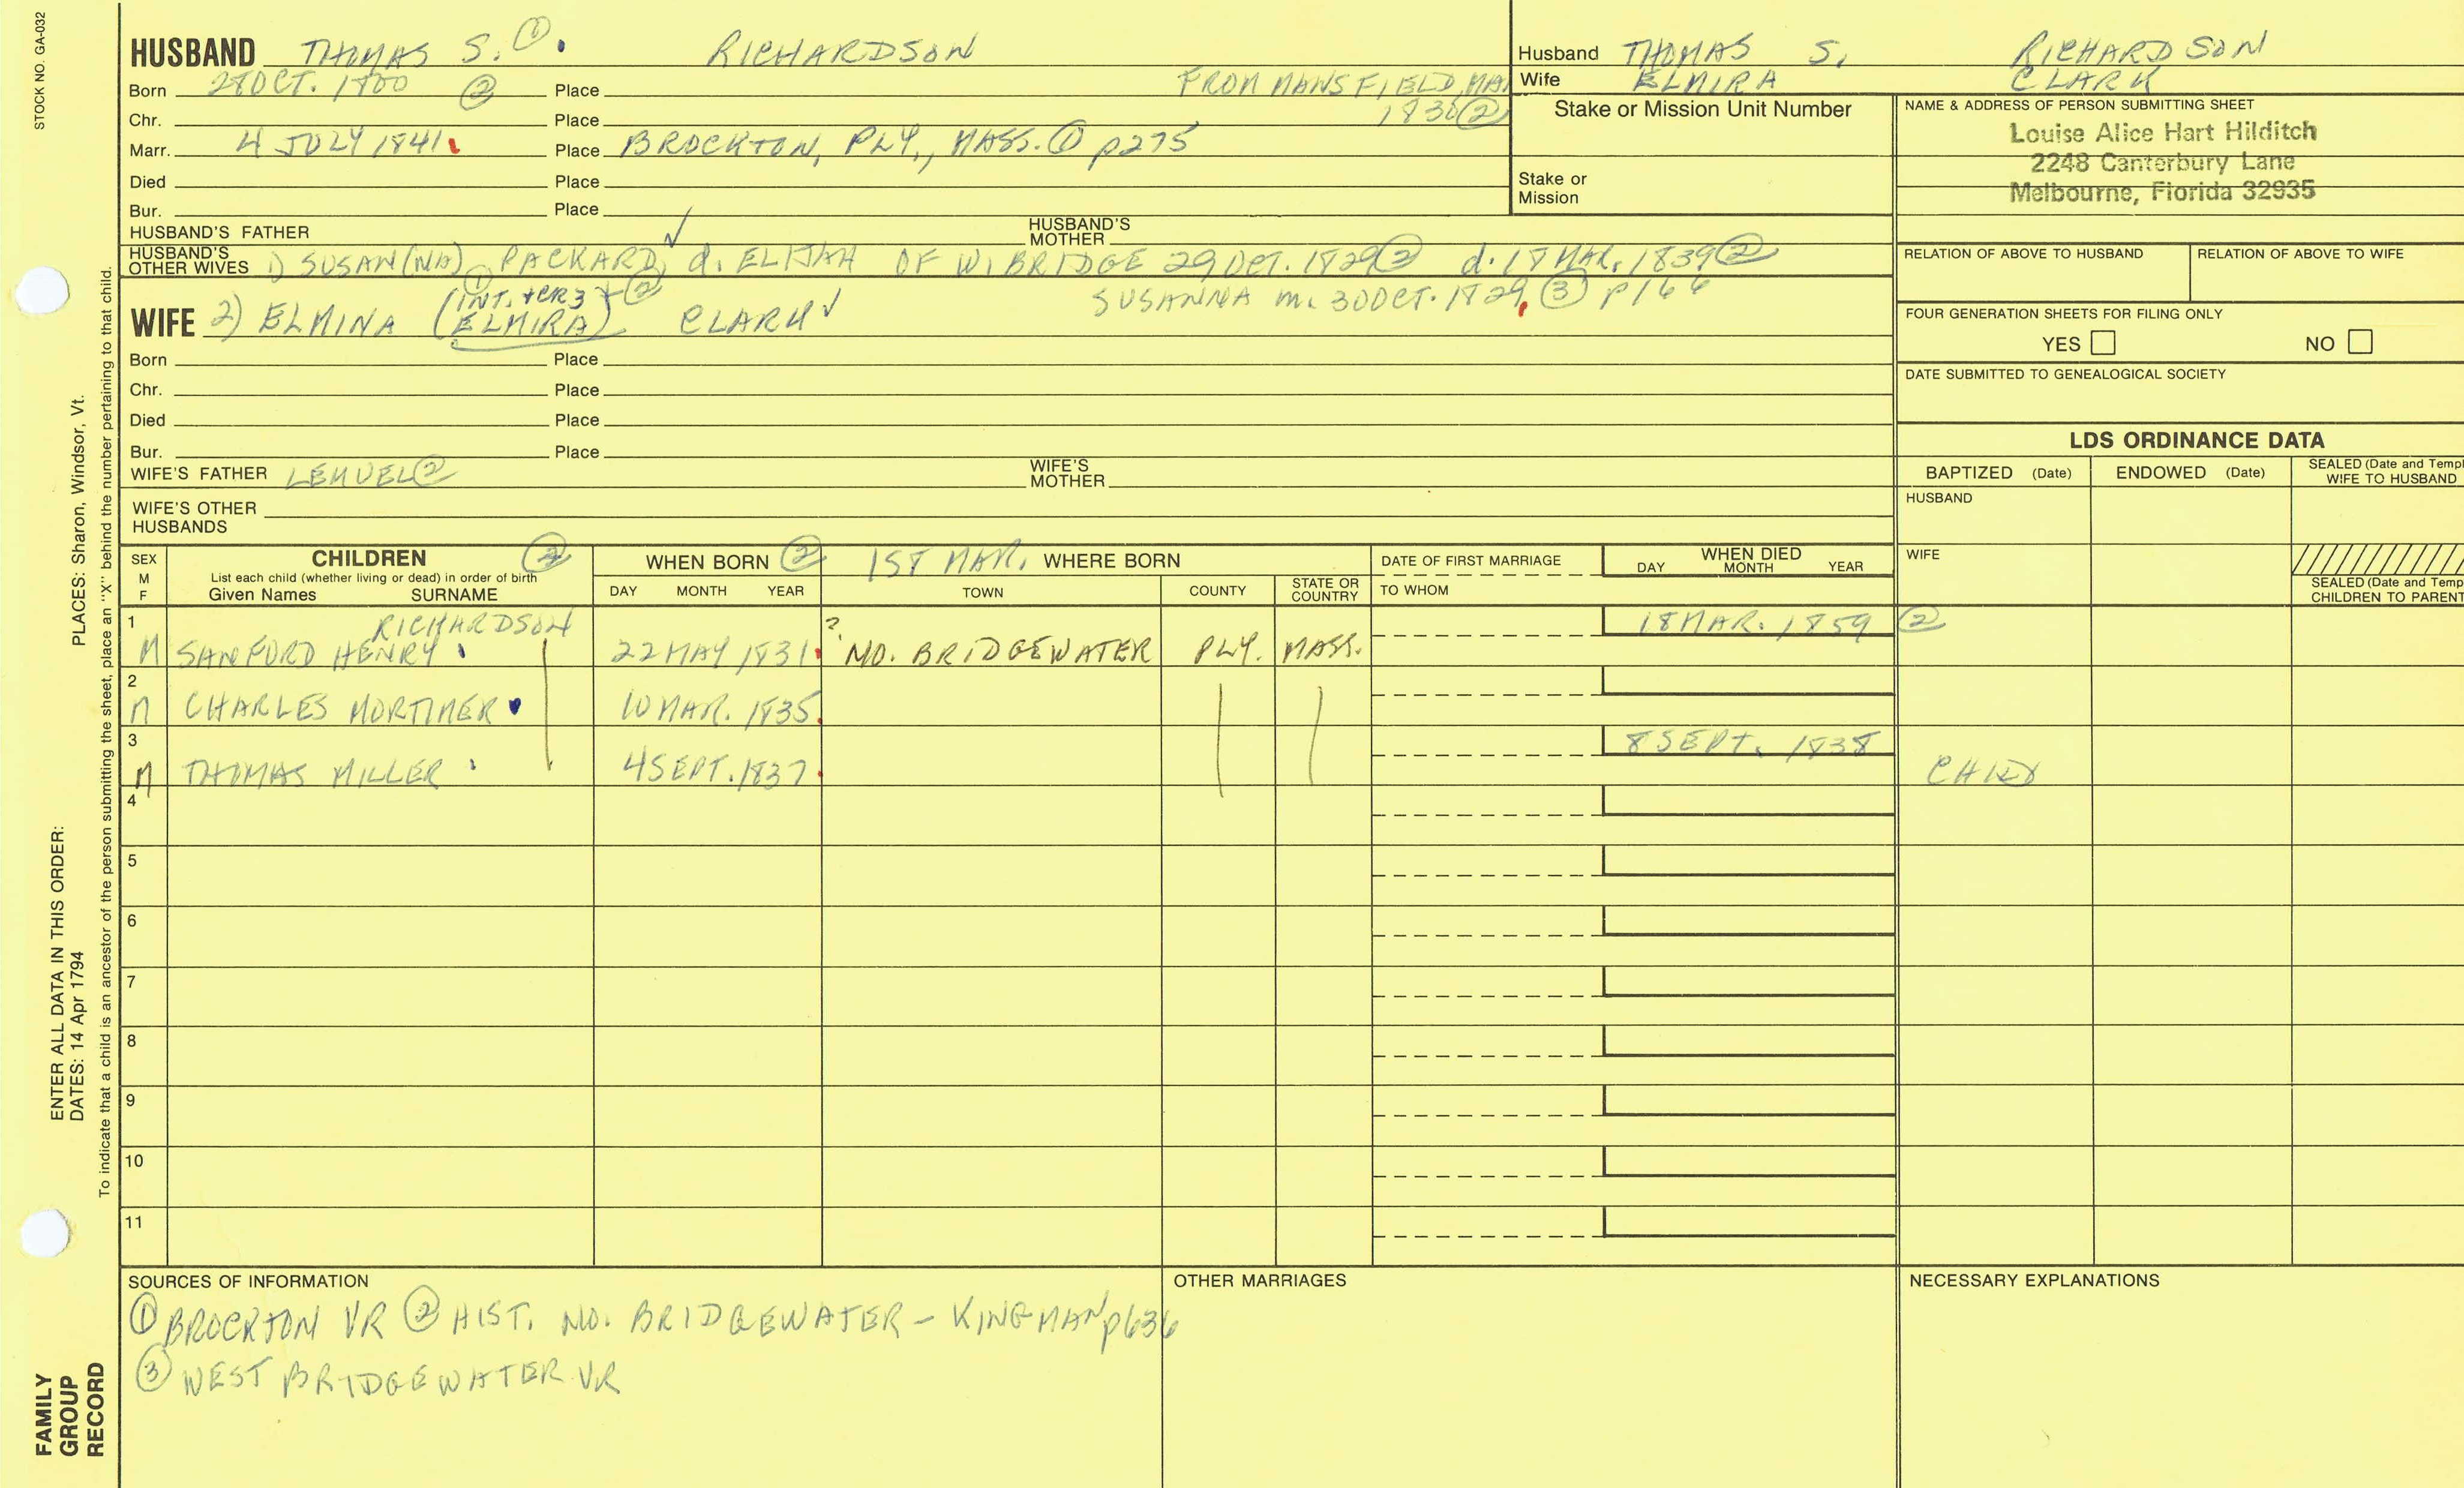 STOCK NO. GA-032
HUSBAND THOMAS S. ① RICHARDSON
Born 28 OCT. 1800 ② Place FROM MANSFIELD, MA
Chr. Place 1830 ②
Marr. 4 JULY 1841 Place BROCKTON, PLY., MASS. ① p275
Died Place
Bur. Place
HUSBAND'S FATHER HUSBAND'S MOTHER
HUSBAND'S OTHER WIVES 1) SUSAN(NA) PACKARD, d. ELIJAH OF W. BRIDGE 29 OCT. 1829 ② d. 18 MAR. 1839 ②
① (INT. + CR3 + ② SUSANNA m. 30 OCT. 1829, ③ p166
WIFE 2) ELMINA (ELMIRA) CLARK ✓
Born Place
Chr. Place
Died Place
Bur. Place
WIFE'S FATHER LEMUEL ② WIFE'S MOTHER
WIFE'S OTHER HUSBANDS
Husband THOMAS S. RICHARDSON
Wife ELMIRA CLARK
Stake or Mission Unit Number
Stake or Mission
NAME & ADDRESS OF PERSON SUBMITTING SHEET
Louise Alice Hart Hilditch
2248 Canterbury Lane
Melbourne, Florida 32935
RELATION OF ABOVE TO HUSBAND RELATION OF ABOVE TO WIFE
FOUR GENERATION SHEETS FOR FILING ONLY
YES NO
DATE SUBMITTED TO GENEALOGICAL SOCIETY
LDS ORDINANCE DATA
BAPTIZED (Date) ENDOWED (Date) SEALED (Date and Templ WIFE TO HUSBAND
HUSBAND
WIFE
SEALED (Date and Temp CHILDREN TO PARENT
SEX M F CHILDREN ② WHEN BORN ② 1ST MAR. WHERE BORN DATE OF FIRST MARRIAGE WHEN DIED
List each child (whether living or dead) in order of birth
Given Names SURNAME DAY MONTH YEAR TOWN COUNTY STATE OR COUNTRY TO WHOM DAY MONTH YEAR
1 RICHARDSON ? 18 MAR. 1859 ②
M SANFORD HENRY 22 MAY 1831 NO. BRIDGEWATER PLY. MASS.
2
M CHARLES MORTIMER 10 MAR. 1835
3 8 SEPT. 1838
M THOMAS MILLER 4 SEPT. 1837 CHILD
4
5
6
7
8
9
10
11
SOURCES OF INFORMATION
① BROCKTON VR ② HIST. NO. BRIDGEWATER - KINGMAN p636
③ WEST BRIDGEWATER VR
OTHER MARRIAGES
NECESSARY EXPLANATIONS
PLACES: Sharon, Windsor, Vt.
ENTER ALL DATA IN THIS ORDER:
DATES: 14 Apr 1794
To indicate that a child is an ancestor of the person submitting the sheet, place an "X" behind the number pertaining to that child.
FAMILY
GROUP
RECORD